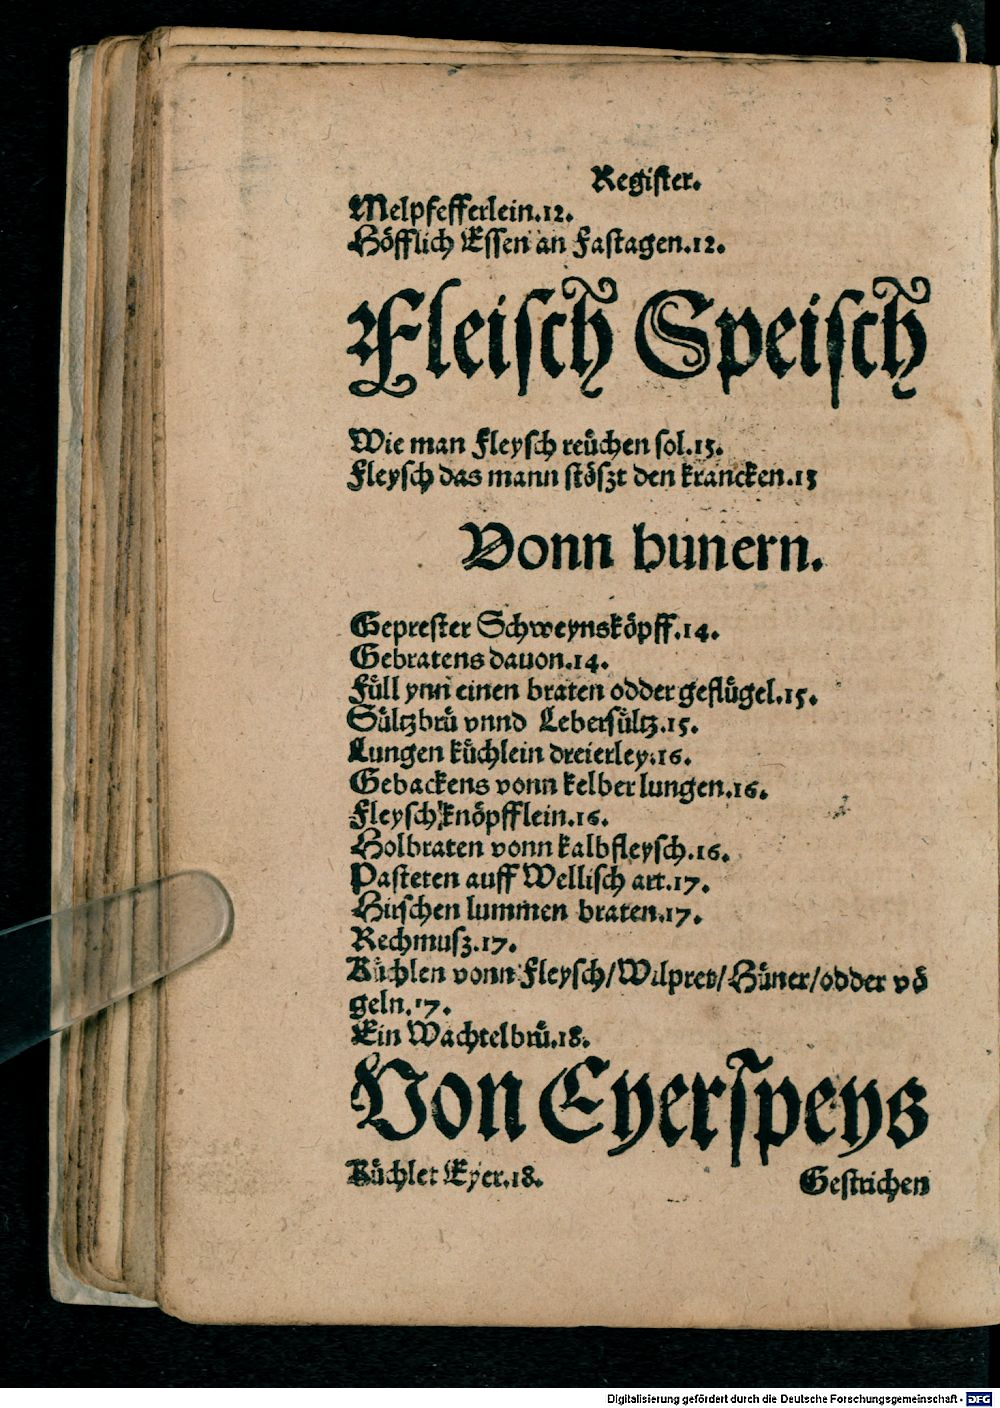 Register.
Melpfefferlein.12.
Höfflich Essen an Fastagen.12.
Fleisch Speisch
Wie man Fleysch reüchen sol.13.
Fleysch das mann stöszt den krancken.13
Vonn hunern.
Geprester Schweynsköpff.14.
Gebratens dauon.14.
Füll ynn einen braten odder geflügel.15.
Sültzbrü vnnd Lebersültz.15.
Lungen küchlein dreierley.16.
Gebackens vonn kelber lungen.16.
Fleysch knöpfflein.16.
Holbraten vonn kalbfleysch.16.
Pasteten auff Wellisch art.17.
Hirschen lummen braten.17.
Rechmusz.17.
Küchlen vonn Fleysch/Wilpret/Hüner/odder vö
geln.17.
Ein Wachtelbrü.18.
Von Eyerspeys
Küchlet Eyer.18.
Gestrichen
Digitalisierung gefördert durch die Deutsche Forschungsgemeinschaft - DFG